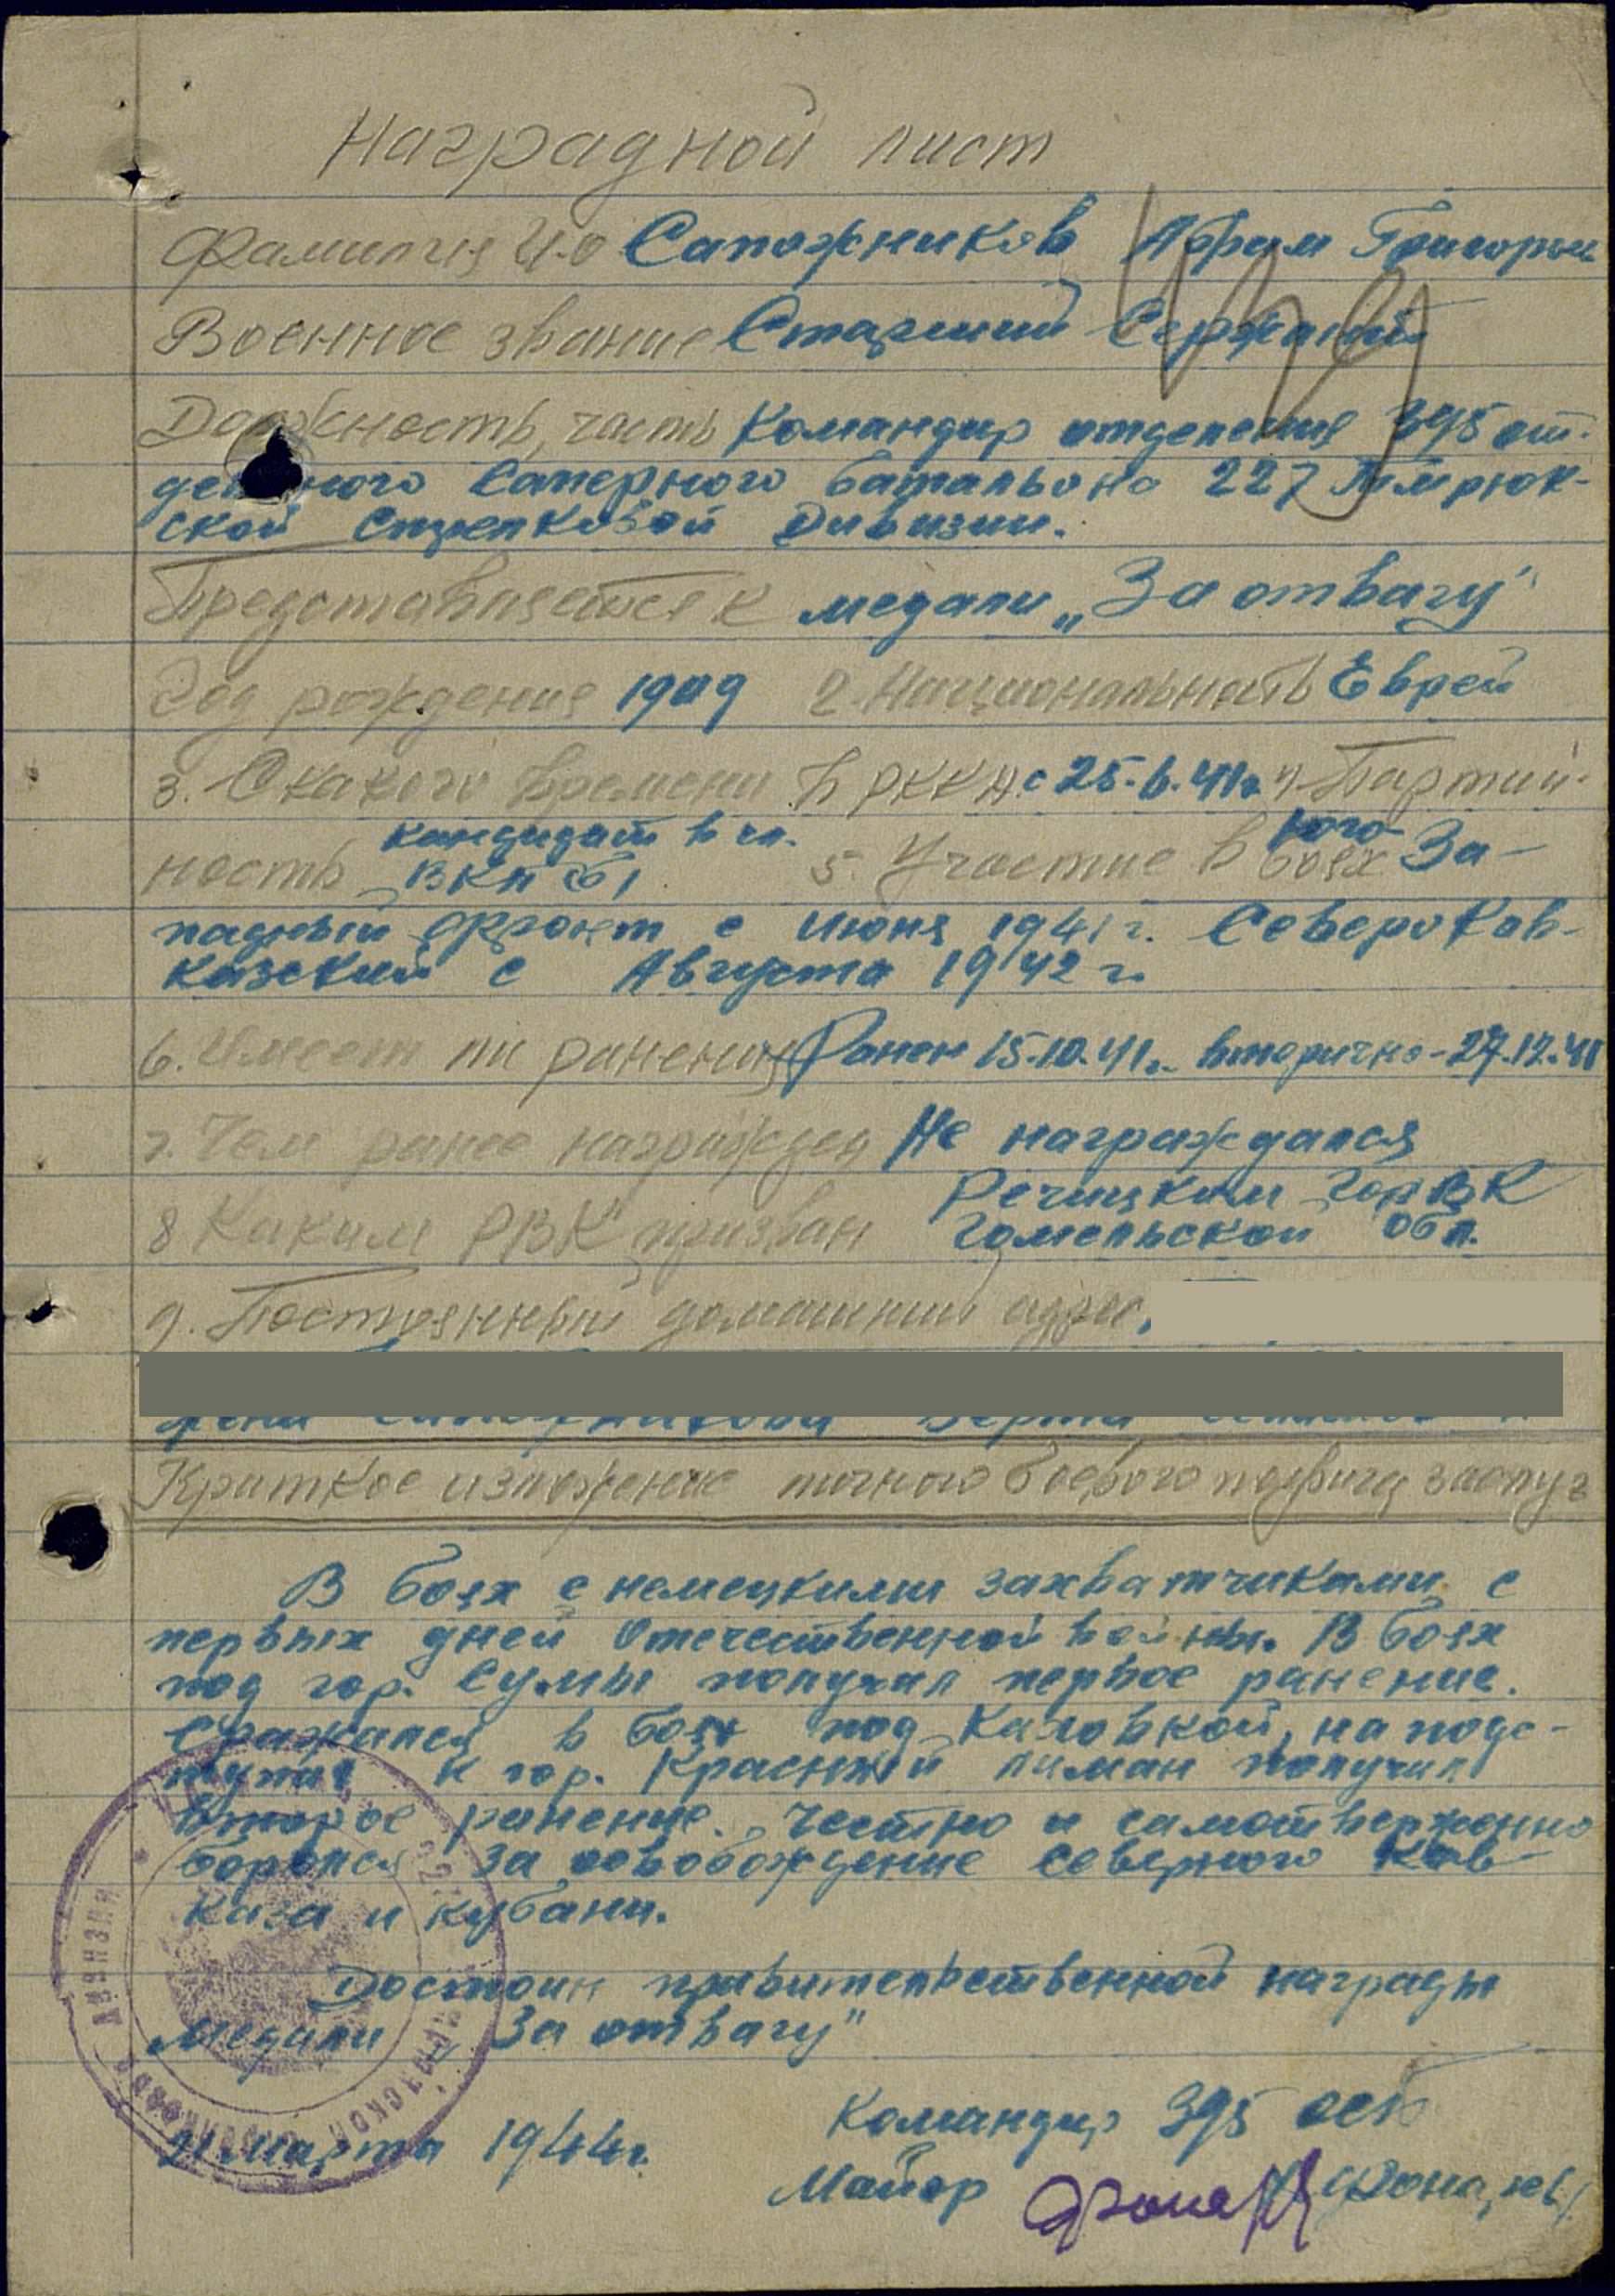 Наградной лист
Фамилия И.О Сапожников Абрам Григорьи
Военное звание Старший Сержант
Должность, часть Командир отделения 395 от-
дельного Саперного батальона 227 Темрюк-
ской Стрелковой Дивизии.
Представляется к медали „За отвагу"
Год рождения 1909 2. Национальность Еврей
3. С какого времени в РККА с 25.6.41г. 4. Партий-
ность кандидат в чл. ВКП(б) 5. Участие в боях Юго За-
падный фронт с Июня 1941г. Северо Кав-
казский с Августа 1942 г.
6. Имеет ли ранения Ранен 15.10.41г. вторично - 27.12.41
7. Чем ранее награжден Не награждался
8 Каким РВК призван Речицким ГорВК
Гомельской обл.
9. Постоянный домашний адрес
жена Сапожникова Берта
Краткое изложение личного боевого подвига заслуг
В боях с немецкими захватчиками с
первых дней Отечественной войны. В боях
под гор. Сумы получил первое ранение.
Сражался в боях под Каховкой, наподс-
тупах к гор. Красный лиман получил
второе ранение. Честно и самоотверженно
боролся за освобождение Северного Кав-
каза и Кубани.
Достоин правительственной награды
медали „За отвагу"
21 марта 1944г.
Командир 395 осб
Майор